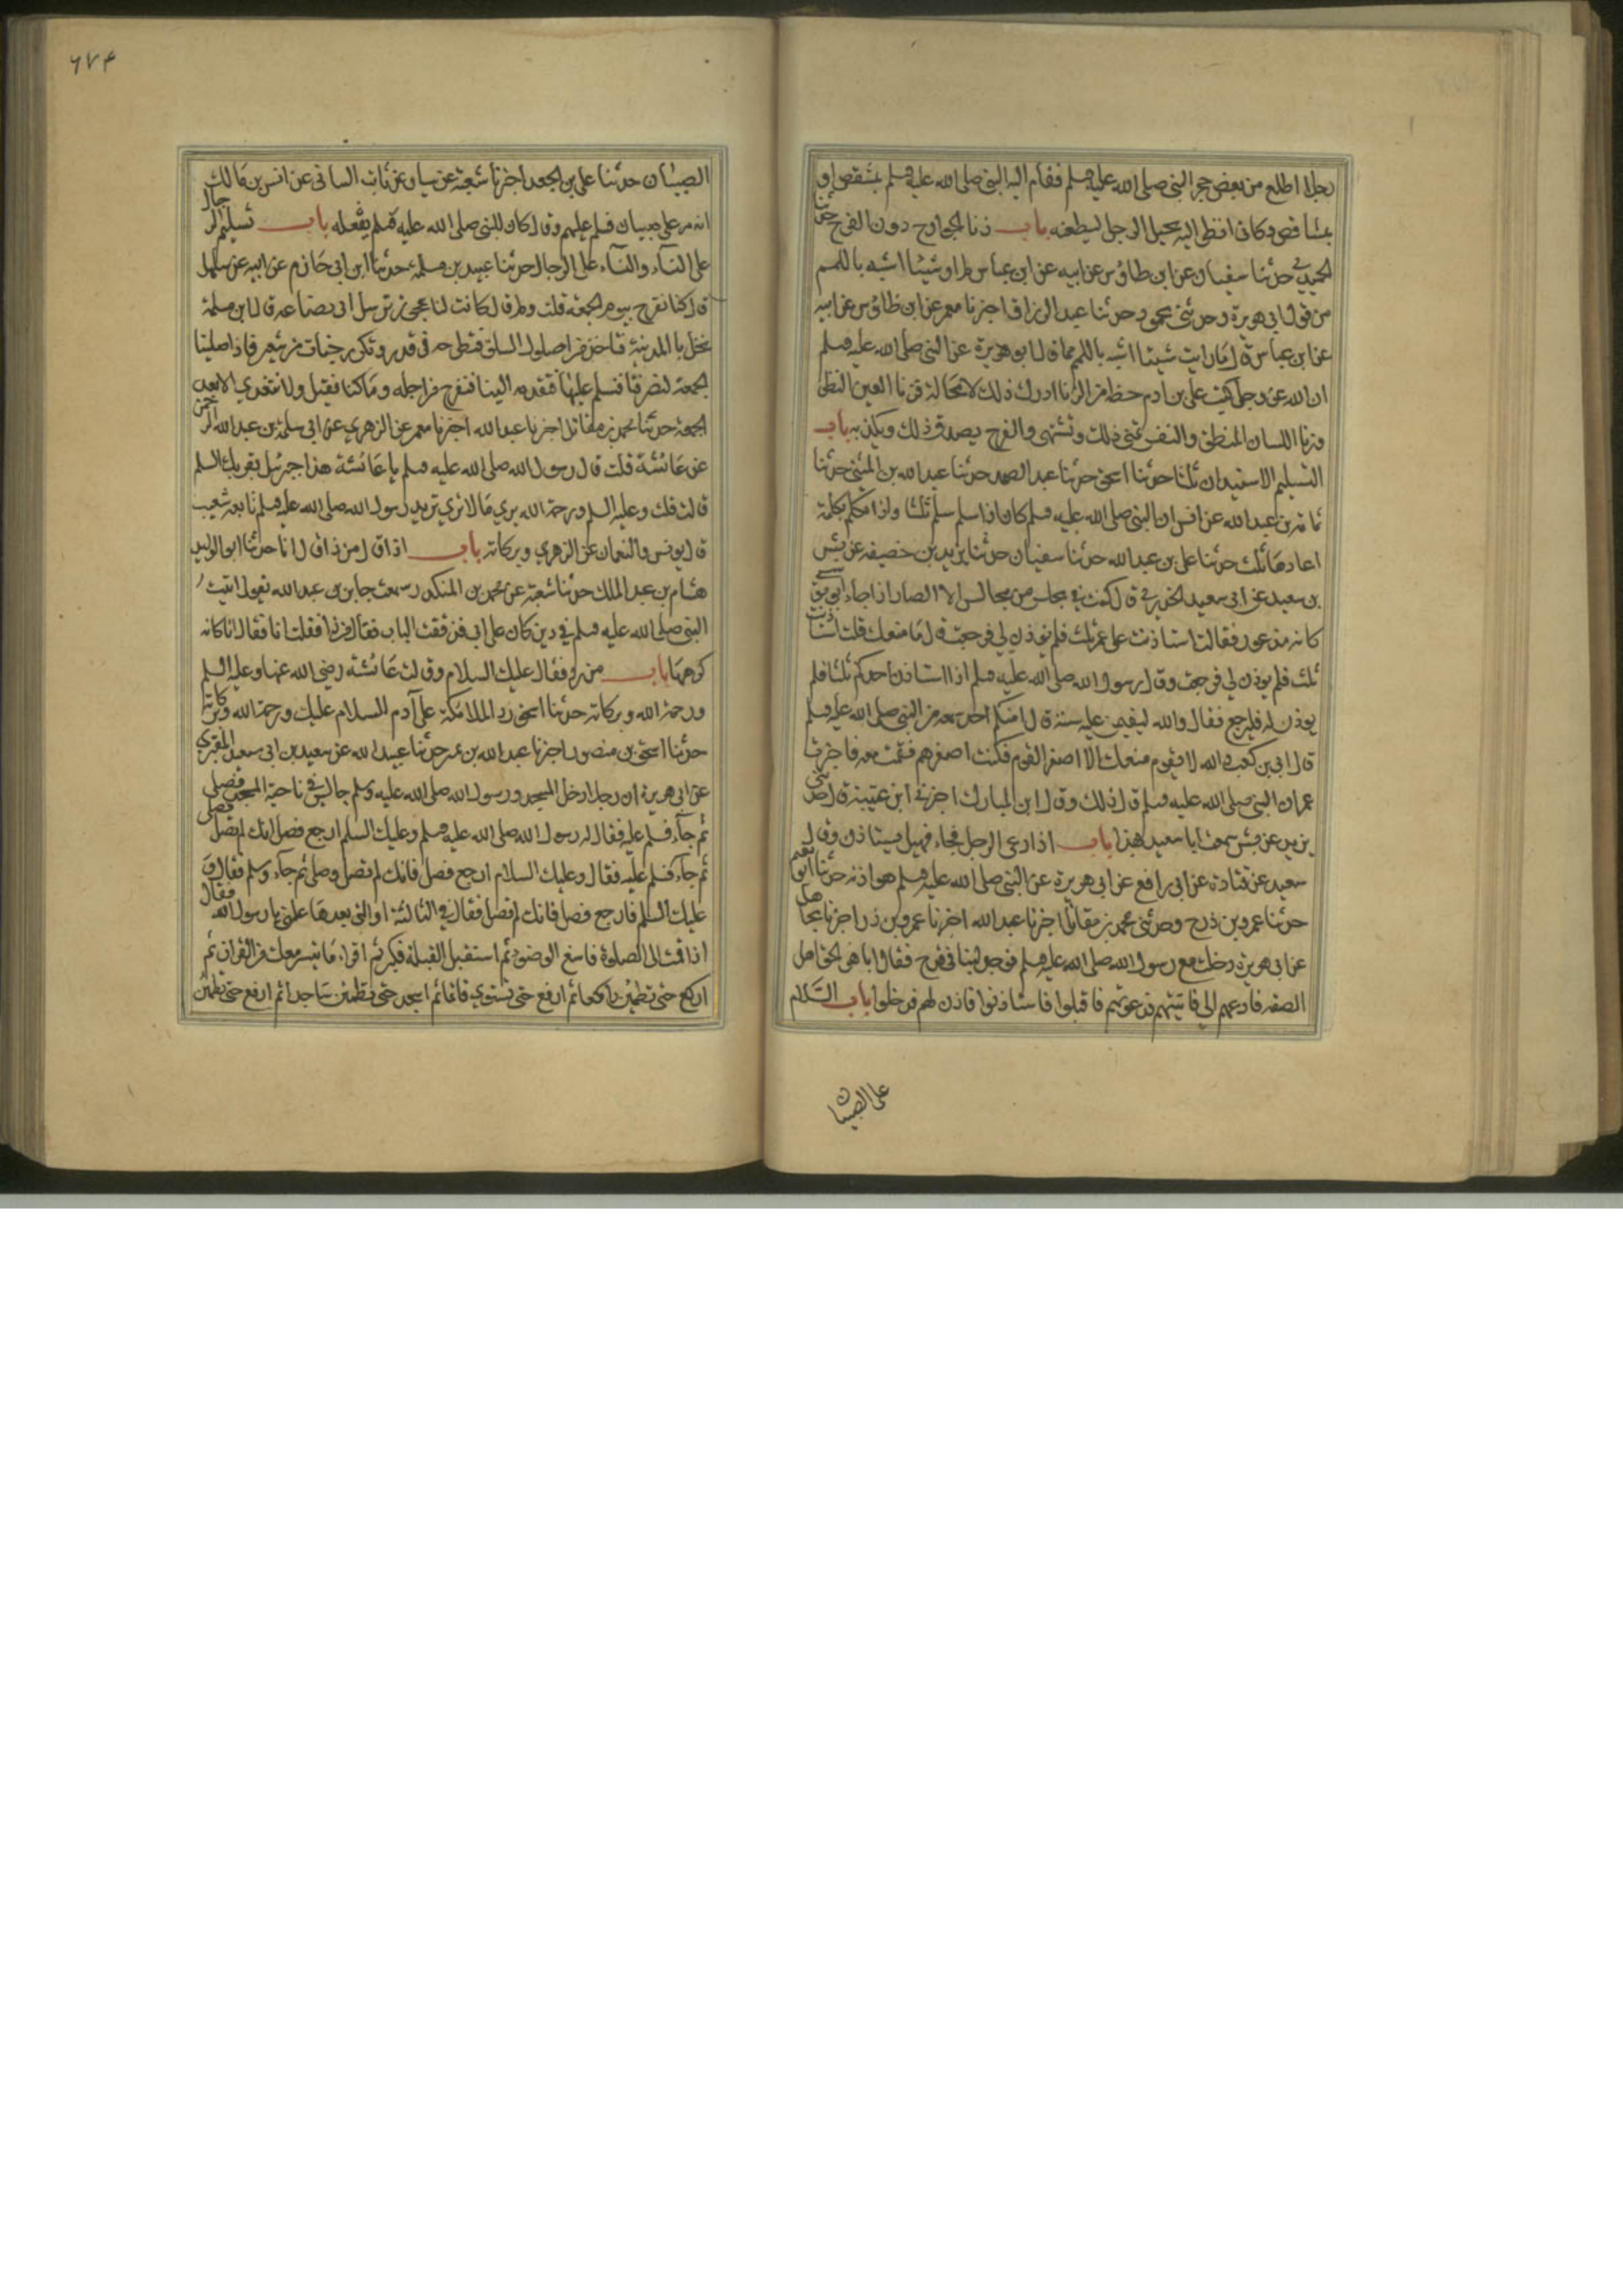 رجلا اطلع من بعض حجر النبى صلى الله عليه وسلم فقام اليه النبى صلى الله عليه وسلم بمشقص او
بمشاقص وكانى انظر اليه يختل الرجل ليطعنه باب زنا الجوارح دون الفرج حدثنا
الحميدي حدثنا سفيان عن ابن طاوس عن ابيه عن ابن عباس لم ار شيئا اشبه باللمم
من قول ابى هريرة وحدثنى محمود حدثنا عبد الرزاق اخبرنا معمر عن ابن طاوس عن ابيه
عن ابن عباس قال ما رايت شيئا اشبه باللمم مما قال ابو هريرة عن النبى صلى الله عليه وسلم
ان الله عز وجل كتب على بن ادم حظه من الزنا ادرك ذلك لا محالة فزنا العين النظر
وزنا اللسان المنطق والنفس تمنى ذلك وتشتهى والفرج يصدق ذلك ويكذبه باب
التسليم والاستيذان ثلثا حدثنا اسحق حدثنا عبد الصمد حدثنا عبد الله بن المثنى حدثنا
ثمامة بن عبد الله عن انس ان النبى صلى الله عليه وسلم كان اذا سلم سلم ثلثا واذا تكلم بكلمة
اعادها ثلث حدثنا على بن عبد الله حدثنا سفيان حدثنا يزيد بن خصيفه عن بسر
بن سعيد عن ابى سعيد الخدري قال كنت فى مجلس من مجالس الانصار اذ جاء ابو موسى
كانه مذعور فقالت استاذنت على عمر ثلث فلم يوذن لي فرجعت قال ما منعك قلت استاذنت
ثلث فلم يوذن لي فرجعت وقال رسول الله صلى الله عليه وسلم اذا استاذن احدكم ثلثا فلم
يوذن له فليرجع فقال والله ليقيمن عليه بينة قال امنكم احد سمعه من النبى صلى الله عليه وسلم
قال ابى بن كعب والله لا يقوم معك الا اصغر القوم فكنت اصغرهم فقمت معه فاخبرت
عمر ان النبى صلى الله عليه وسلم قال ذلك وقال ابن المبارك اخبرنى ابن عيينة قال حدثنى
يزيد عن بسر سمعت ابا سعيد بهذا باب اذا دعى الرجل فجاء فهل يستاذن وقال
سعيد عن قتادة عن ابى رافع عن ابى هريرة عن النبى صلى الله عليه وسلم هو اذنه حدثنا ابو نعيم
حدثنا عمر وبن ذر ح وحدثنى محمد بن مقاتل اخبرنا عبد الله اخبرنا عمر وبن ذر اخبرنا مجاهد
عن ابى هريرة دخلت مع رسول الله صلى الله عليه وسلم فوجد لبنا فى قدح فقال ابا هر الحق اهل
الصفه فادعهم الي فاتيتهم فدعوتهم فاقبلوا فاستاذنوا فاذن لهم فدخلوا باب السلام
على الصبيان
٦٧٤
الصبيان حدثنا على بن الجعد اخبرنا شعبة عن سيار عن ثابت البنانى عن انس بن مالك
انه مر على صبيان فسلم عليهم وقال كان النبى صلى الله عليه وسلم يفعله باب تسليم الرجال
على النساء والنساء على الرجال حدثنا عبيد بن مسلمة حدثنا ابن ابى حازم عن ابيه عن سهل
قال كنا نفرح بيوم الجمعة قلت ولم قال كانت لنا عجوز ترسل الى بضاعه قال ابن مسلمة
نخل بالمدينة فتاخذ من اصول السلق فتطرحه فى قدر وتكركر حبات من شعير فاذا صلينا
الجمعة انصرفنا فنسلم عليها فتقدمه الينا فنفرح من اجله وما كنا نقيل ولا نتغدي الا بعد
الجمعة حدثنا محمد بن مقاتل اخبرنا عبد الله اخبرنا معمر عن الزهري عن ابى سلمة بن عبد الرحمن
عن عائشة قلت قال رسول الله صلى الله عليه وسلم يا عائشة هذا جبرئيل يقريك السلم
قالت قلت وعليه السلم ورحمة الله يري ما لا نري تريد رسول الله صلى الله عليه وسلم تابعه شعيب
قال يونس والنعمان عن الزهري وبركاته باب اذا قال من ذا قال انا حدثنا ابو الوليد
هشام بن عبد الملك حدثنا شعبة عن محمد بن المنكدر سمعت جابر بن عبد الله يقول اتيت
النبى صلى الله عليه وسلم فى دين كان على ابى فدققت الباب فقال من ذا فقلت انا فقال انا كانه
كرهها باب من رد فقال عليك السلام وقالت عائشة رضى الله عنها وعليه السلم
ورحمة الله وبركاته حدثنا اسحق رد الملائكة على آدم السلام عليك ورحمة الله وبركاته
حدثنا اسحق بن منصور اخبرنا عبد الله بن نمر حدثنا عبيد الله عن سعيد بن ابى سعيد المقبري
عن ابى هريرة ان رجلا دخل المسجد ورسول الله صلى الله عليه وسلم جالس فى ناحية المسجد فصلى
ثم جاء فسلم عليه فقال له رسول الله صلى الله عليه وسلم وعليك السلم ارجع فصل انك لم تصل فصلى
ثم جاء فسلم عليه فقال وعليك السلام ارجع فصل فانك لم تصل وصلى ثم جاء وسلم فقال و
عليك السلم فارجع فصل فانك لم تصل فقال فى الثالثة او التى بعدها علمنى يا رسول الله فقال
اذا قمت الى الصلوة فاسبغ الوضوء ثم استقبل القبلة فكبر ثم اقراء ما تيسر معك من القران ثم
اركع حتى تطمئن راكعا ثم ارفع حتى تستوي قائما ثم اسجد حتى تطمئن ساجدا ثم ارفع حتى تطمئن